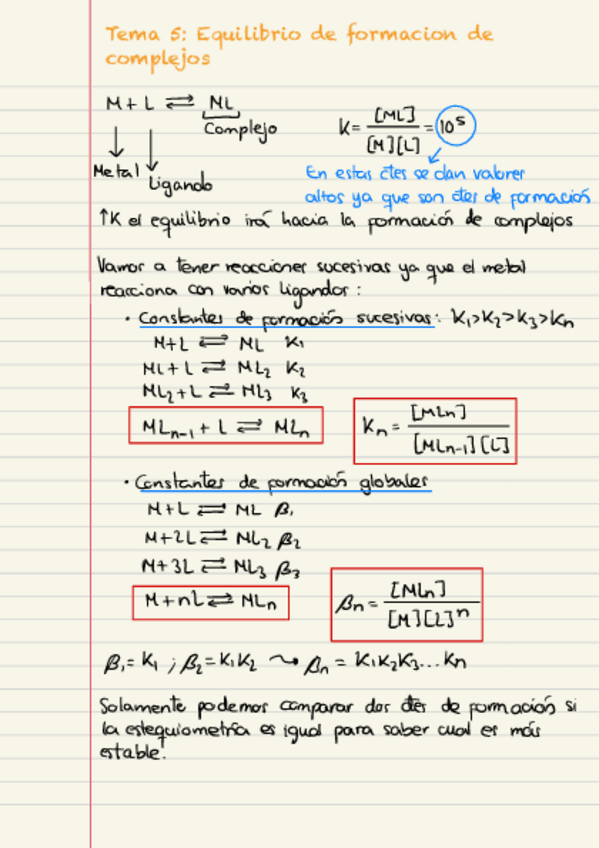 Tema 5: Equilibrio de formacion de
complejos
M + L ⇌ ML
Complejo
K = [ML] / [M][L] = 10⁵
Metal
Ligando
En estas ctes se dan valores
altos ya que son ctes de formación
↑K el equilibrio irá hacia la formación de complejos
Vamos a tener reacciones sucesivas ya que el metal
reacciona con varios ligandos:
• Constantes de formación sucesivas: K₁>K₂>K₃>Kn
M+L ⇌ ML K₁
ML+L ⇌ ML₂ K₂
ML₂+L ⇌ ML₃ K₃
MLn-1 + L ⇌ MLn
Kn = [MLn] / [MLn-1][L]
• Constantes de formación globales
M+L ⇌ ML β₁
M+2L ⇌ ML₂ β₂
M+3L ⇌ ML₃ β₃
M+nL ⇌ MLn
βn = [MLn] / [M][L]ⁿ
β₁= K₁ ; β₂= K₁K₂ ⤳ βn = K₁K₂K₃...Kn
Solamente podemos comparar dos ctes de formación si
la estequiometría es igual para saber cual es más
estable.